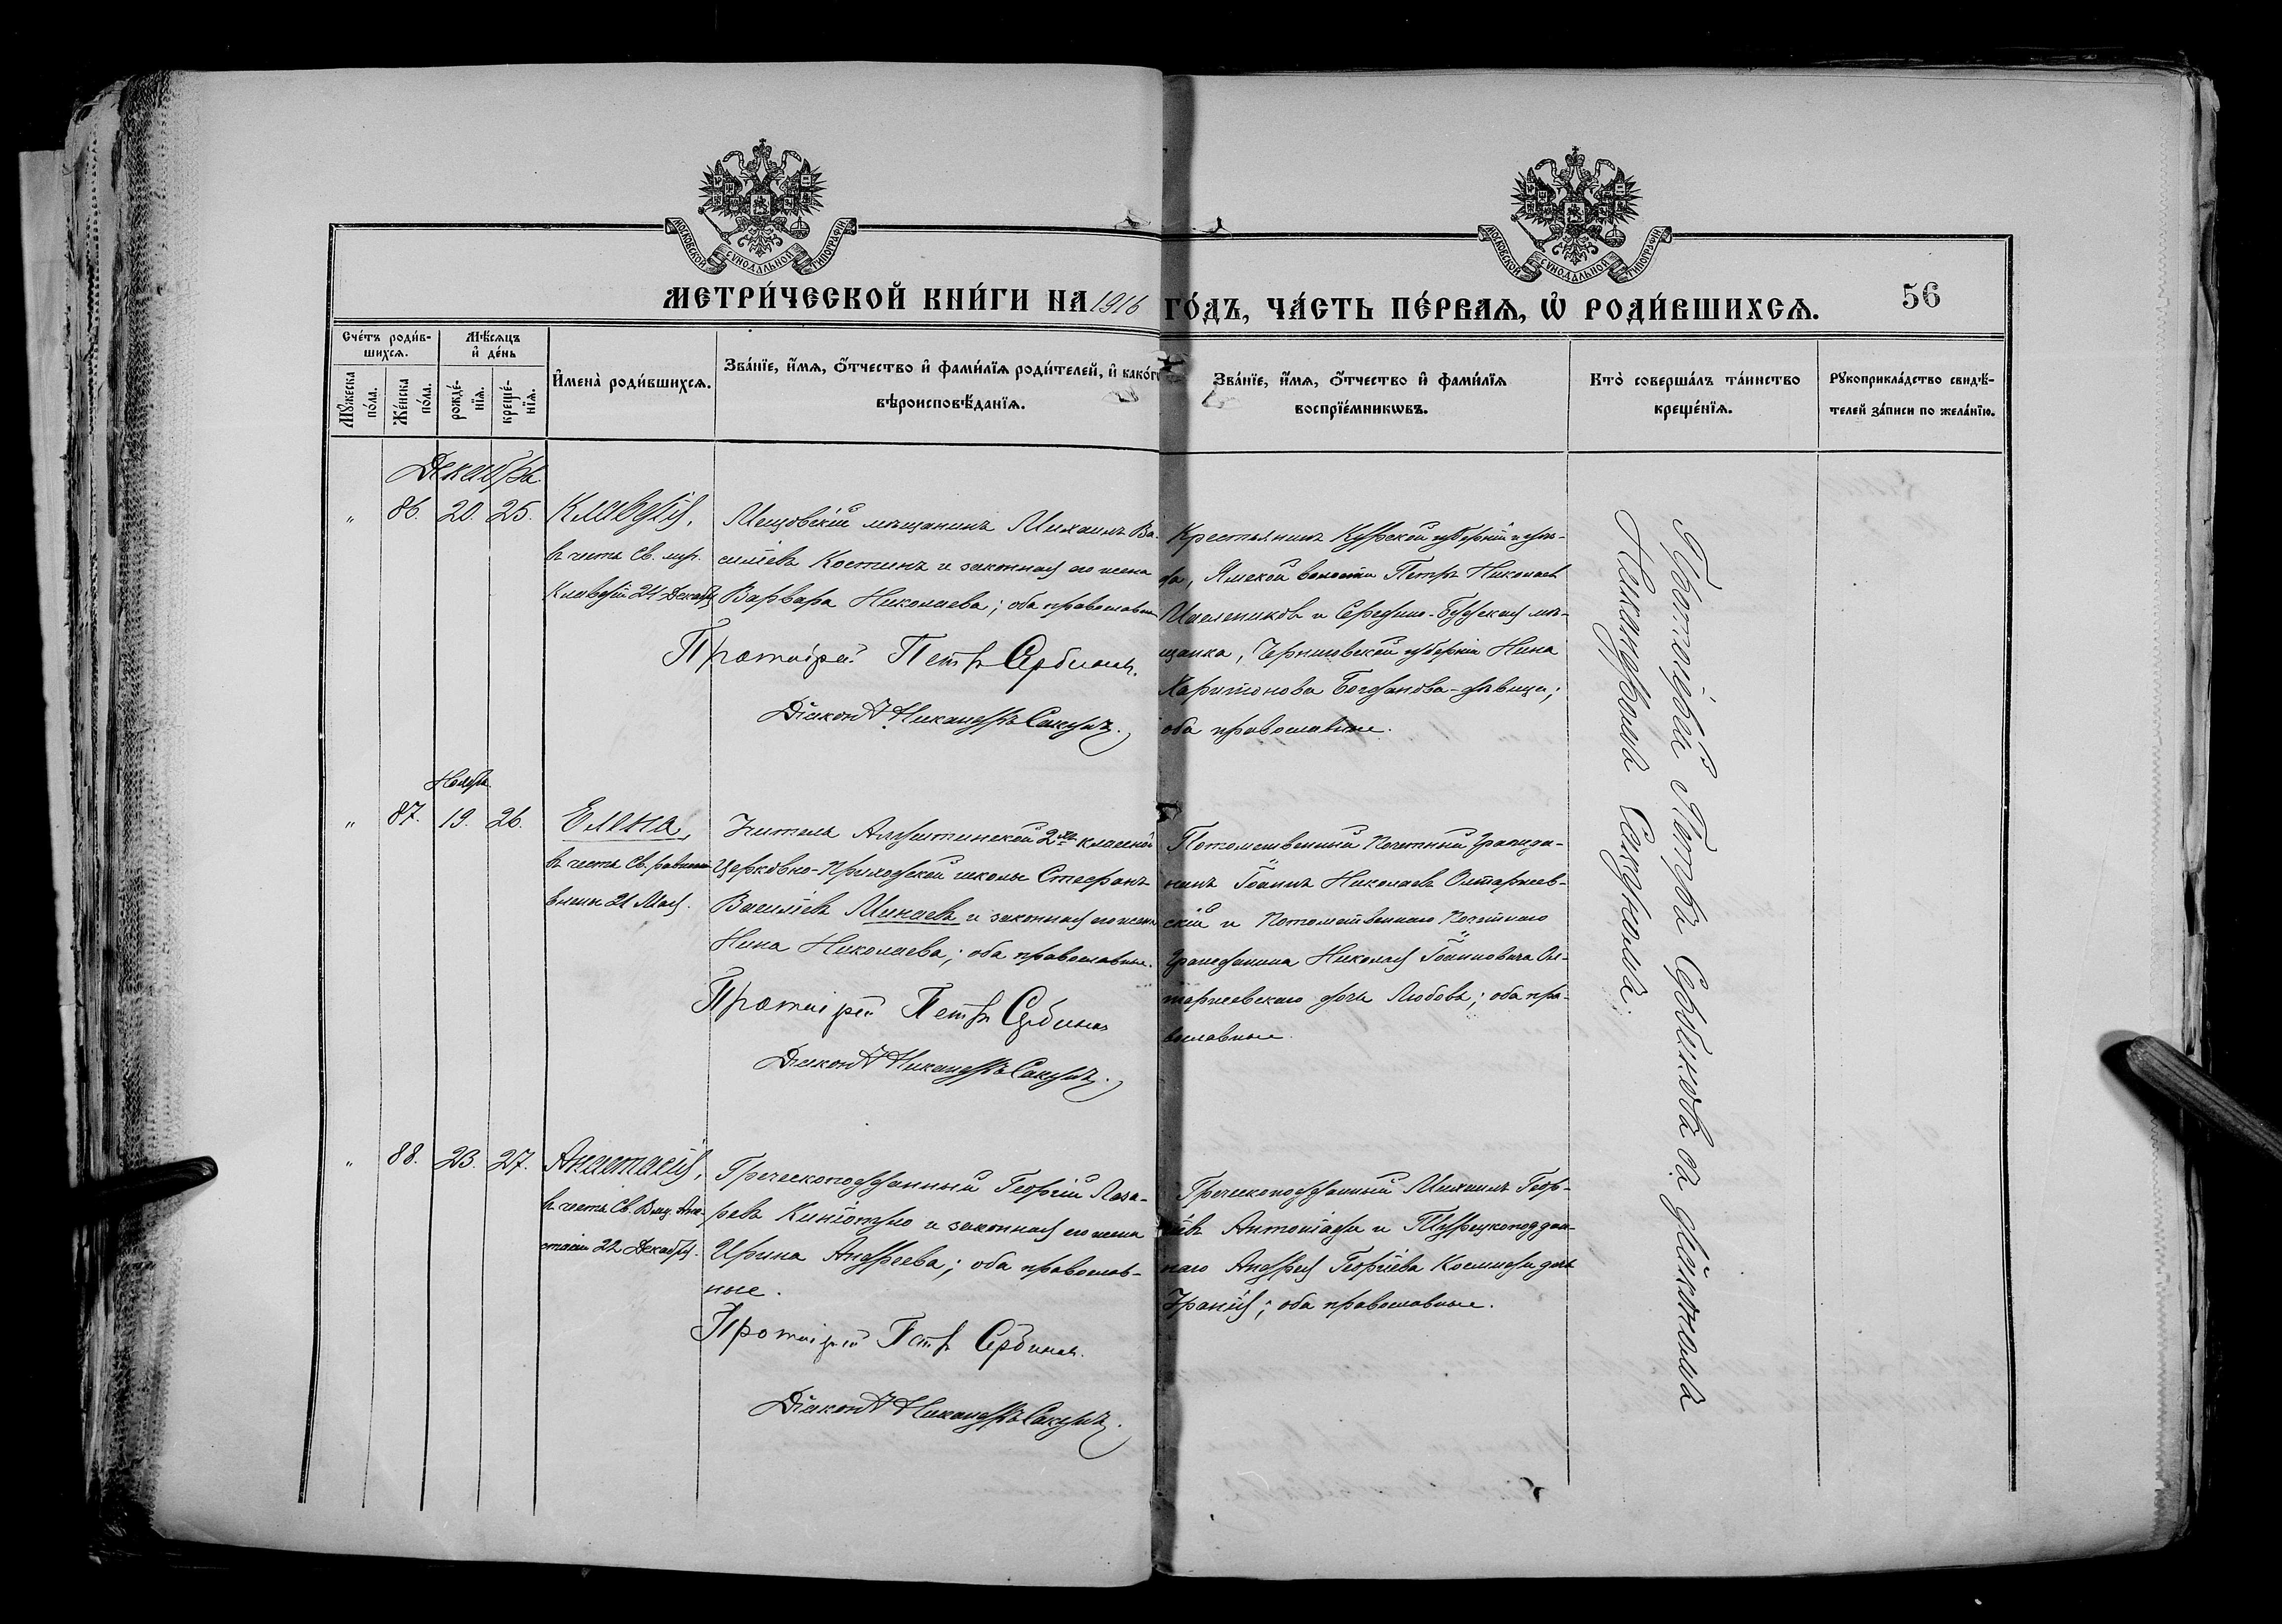 МОСКОВСКОЙ СѴНОДАЛЬНОЙ ТИПОГРАФІИ
МОСКОВСКОЙ СѴНОДАЛЬНОЙ ТИПОГРАФІИ
МЕТРИ́ЧЕСКОЙ КНИ́ГИ НА 1916 ГО́ДЪ, ЧА́СТЬ ПЕ́РВАѦ, Ѡ҆ РОДИ́ВШИХСѦ.
56
Сче́тъ роди́в-
шихсѧ.
Мꙋ́жеска по́ла.
Же́нска по́ла.
Мѣ́сѧцъ
и҆ де́нь
рожде́-
нїѧ.
креще́-
нїѧ.
И҆мена̀ роди́вшихсѧ.
Зва́нїе, и҆́мѧ, ѻ҆́тчество и҆ фами́лїѧ роди́телей, и҆ како́гѡ
вѣроисповѣ́данїѧ.
Зва́нїе, и҆́мѧ, ѻ҆́тчество и҆ фами́лїѧ
воспрїе́мникѡвъ.
Кто̀ соверша́лъ та́инство
креще́нїѧ.
Рꙋкоприкла́дство свидѣ́-
телей за́писи по жела́нїю.
Декабрь
" 86. 20. 25. Клавдія,
въ честь Св. муч.
Клавдіи 24 Декабря
Мещовскій мѣщанинъ Михаилъ Ва-
сильевъ Костинъ и законная его жена
Варвара Николаева; оба православные
Протоіерей Петръ Сербиновъ.
Діаконъ Никандръ Сакунъ.
Крестьянинъ Курской губерніи и уѣз-
да, Ямской волости Петръ Николаевъ
и Середино-Будская мѣ-
щанка, Черниговской губерніи Нина
Харитонова Богданова-дѣвица;
оба православные.
Ноября
" 87. 19. 26. Елена,
въ честь Св. равноап.
Елены 21 Мая.
Учитель Алуштинской 2хъ классной
Церковно-Приходской школы Стефанъ
Васильевъ Минаевъ и законная его жена
Нина Николаева; оба православные.
Протоіерей Петръ Сербиновъ
Діаконъ Никандръ Сакунъ.
Потомственный Почетный Гражда-
нинъ Іоаннъ Николаевъ Олтаржев-
скій и Потомственнаго Почетнаго
Гражданина Николая Іоанновича Ол-
таржевскаго дочь Любовь; оба пра-
вославные.
" 88. 23. 27. Анастасія,
въ честь Св. Влмц. Ана-
стасіи 22 Декабря.
Греческоподданный Георгій Лаза-
ревъ и законная его жена
Ирина Андреева; оба православ-
ные.
Протоіерей Петръ Сербиновъ.
Діаконъ Никандръ Сакунъ.
Греческоподданный Михаилъ Геор-
гіевъ Антоніади и Турецкоподдан-
наго Андрея Георгіева Космиди дочь
Уранія; оба православные.
Протоіерей Петръ Сербиновъ съ діакономъ
Никандромъ Сакуномъ.